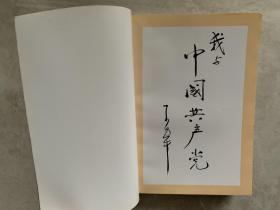 我与
中國共产党